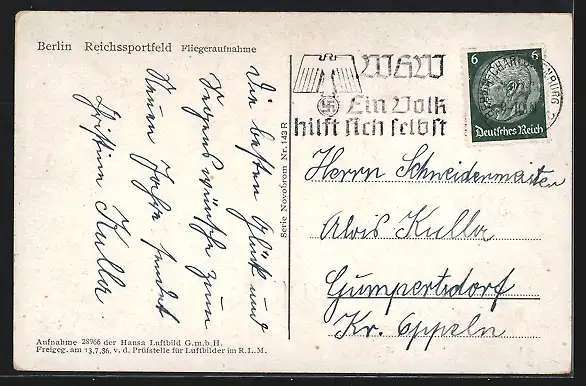 Berlin Reichssportfeld Fliegeraufnahme
Die besten Glück und
Segenswünsche zum
Neuen Jahre sendet
Christine Kulla
Aufnahme 28966 der Hansa Luftbild G.m.b.H.
Freigeg. am 13.7.36. v. d. Prüfstelle für Luftbilder im R.L.M.
Serie Novobrom Nr. 143 R
WHW
Ein Volk
hilft sich selbst
6 6
Deutsches Reich
Herrn Schneidermeister
Alois Kulla
Gumpertsdorf
Kr. Oppeln